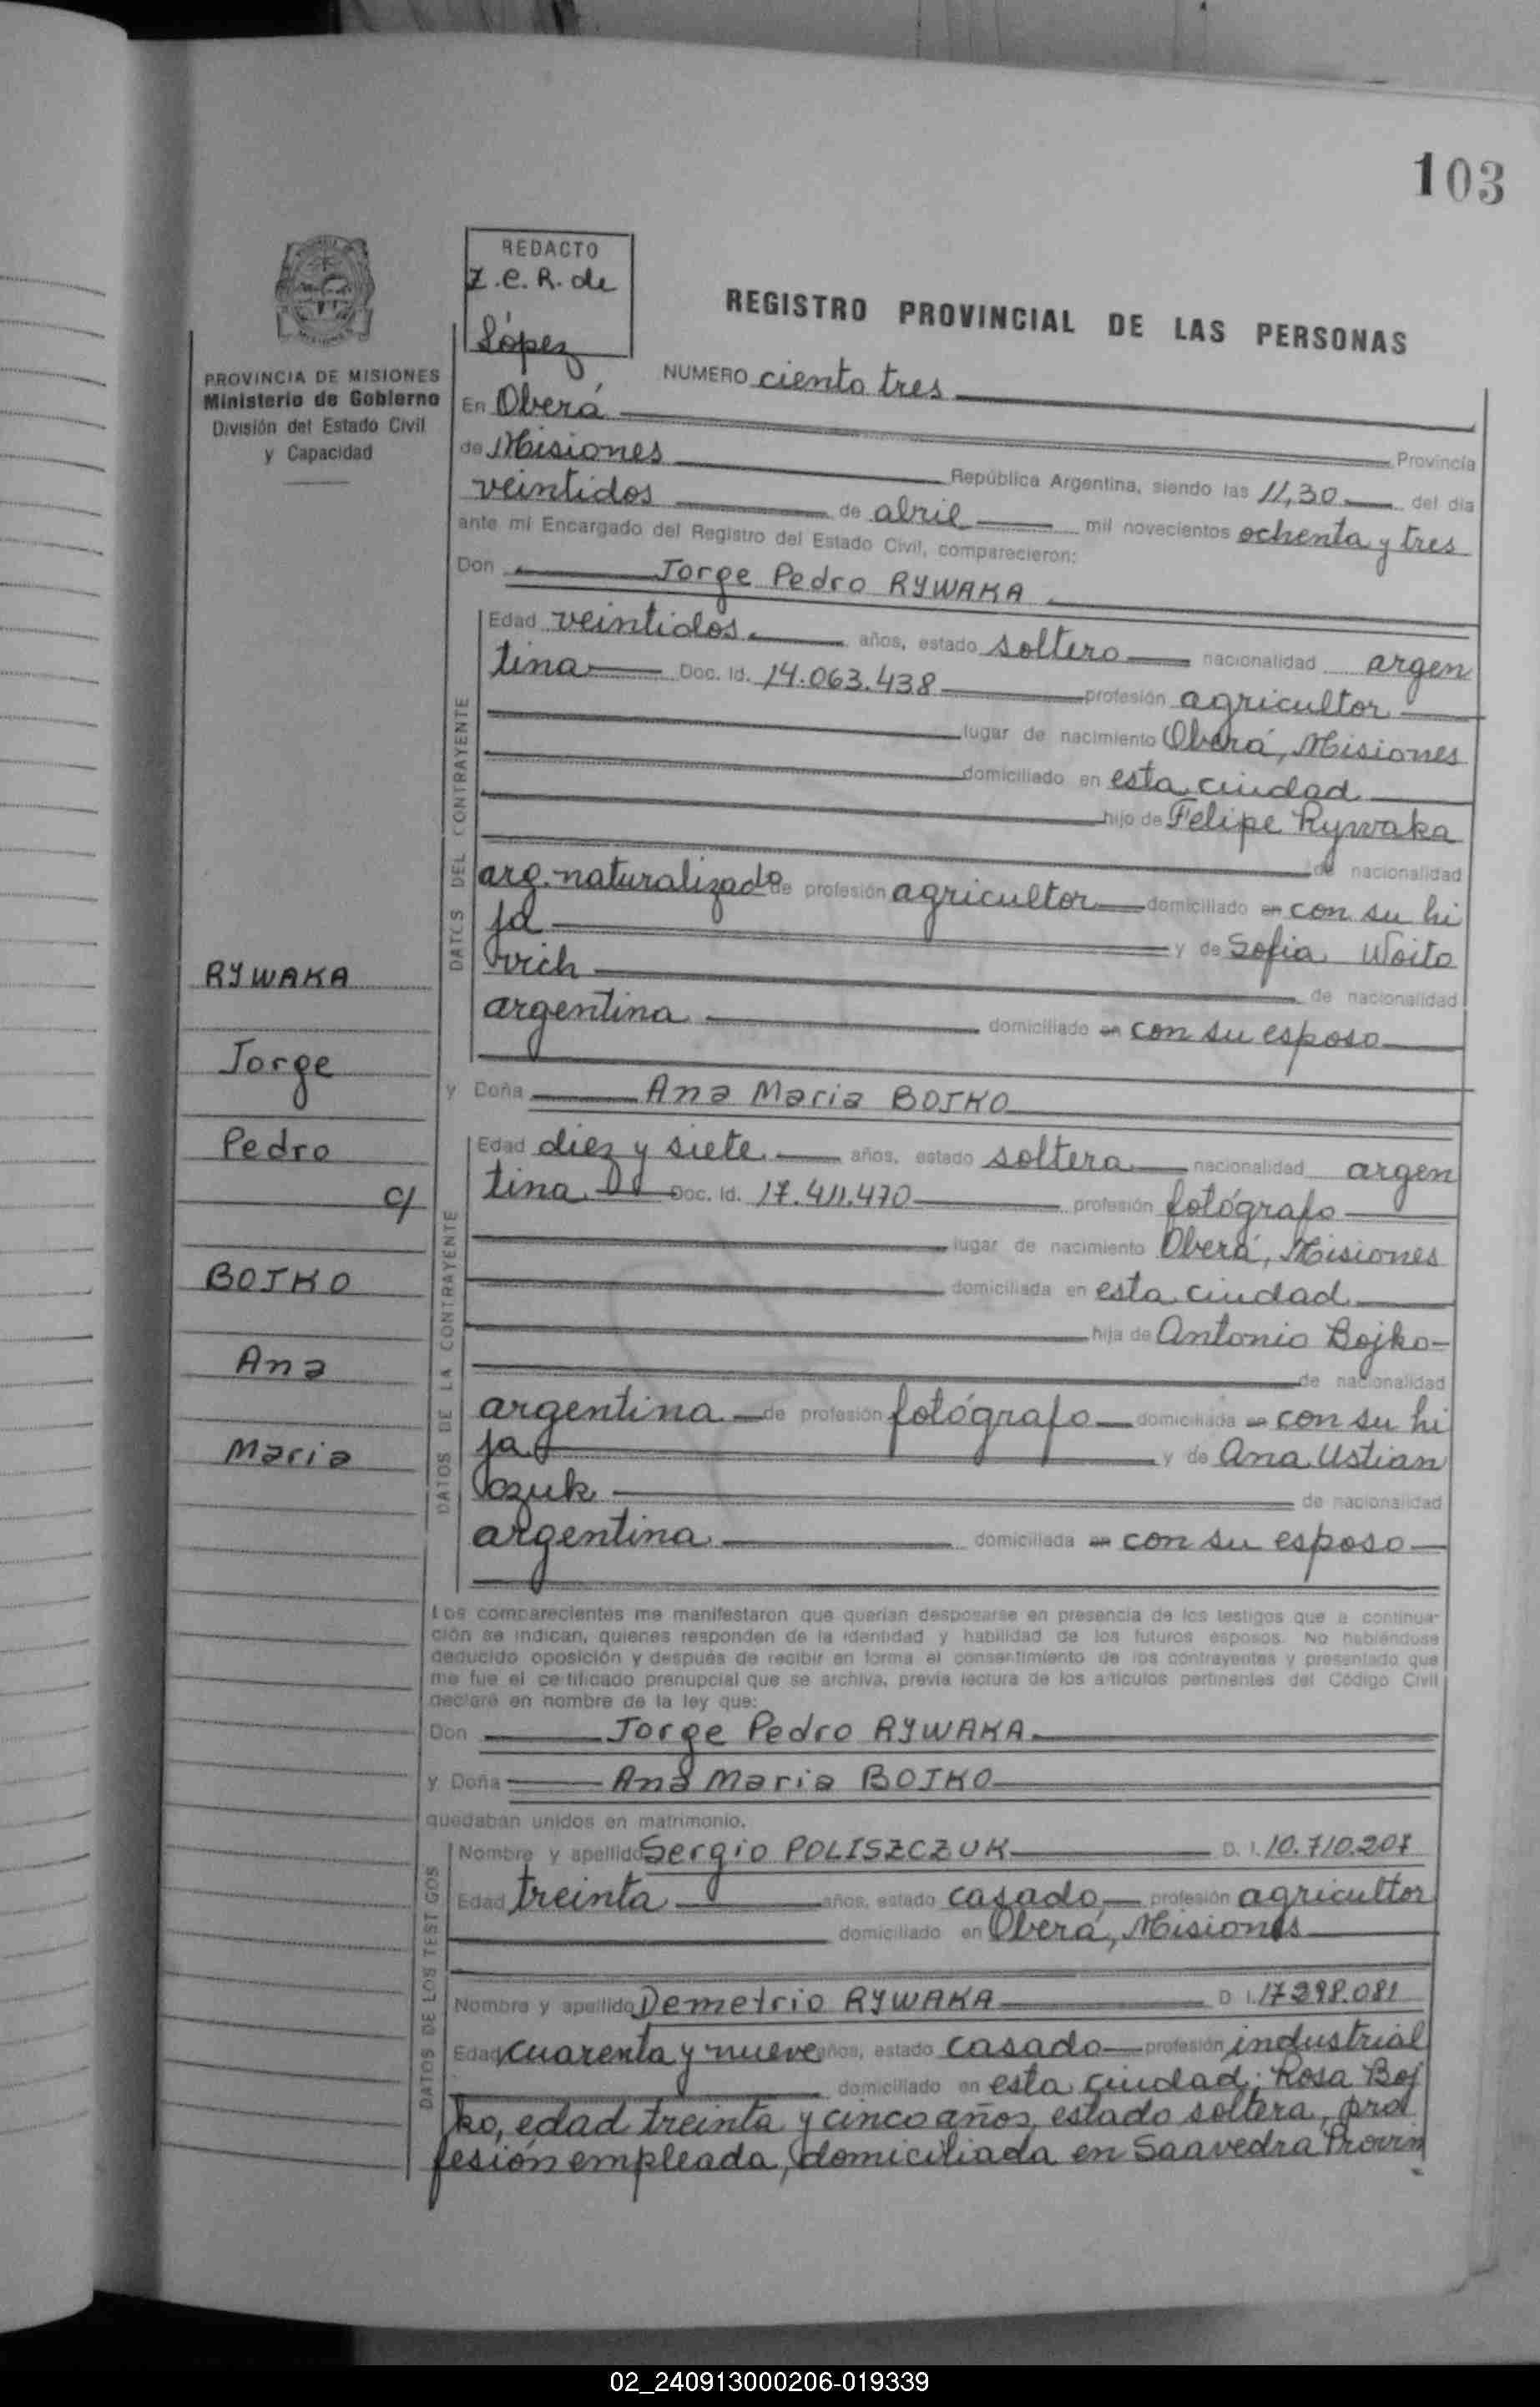 103
REDACTO
Z.C.R. de
López
REGISTRO PROVINCIAL DE LAS PERSONAS
PROVINCIA DE MISIONES
Ministerio de Gobierno
División del Estado Civil
y Capacidad
NUMERO ciento tres
En Oberá Provincia
de Misiones República Argentina, siendo las 11,30 del día
veintidos de abril mil novecientos ochenta y tres
ante mi Encargado del Registro del Estado Civil, comparecieron:
Don Jorge Pedro RYWAKA
DATOS DEL CONTRAYENTE
Edad veintidos años, estado soltero nacionalidad argen
tina Doc. Id. 14.063.438 profesión agricultor
lugar de nacimiento Oberá, Misiones
domiciliado en esta ciudad
hijo de Felipe Rywaka
de nacionalidad
arg. naturalizado de profesión agricultor domiciliado en con su hi
ja y de Sofia Woito
vich de nacionalidad
argentina domiciliado en con su esposo
RYWAKA
Jorge
Pedro
c/
BOJKO
Ana
Maria
y Doña Ana Maria BOJKO
DATOS DE LA CONTRAYENTE
Edad diez y siete años, estado soltera nacionalidad argen
tina Doc. Id. 17.411.470 profesión fotógrafo
lugar de nacimiento Oberá, Misiones
domiciliada en esta ciudad
hija de Antonio Bojko
de nacionalidad
argentina de profesión fotógrafo domiciliada en con su hi
ja y de Ana Ustian
ozuk de nacionalidad
argentina domiciliada en con su esposo
Los comparecientes me manifestaron que querían desposarse en presencia de los testigos que a continua-
ción se indican, quienes responden de la identidad y habilidad de los futuros esposos. No habiéndose
deducido oposición y después de recibir en forma el consentimiento de los contrayentes y presentado que
me fue el certificado prenupcial que se archiva, previa lectura de los artículos pertinentes del Código Civil
declaré en nombre de la ley que:
Don Jorge Pedro RYWAKA
y Doña Ana Maria BOJKO
quedaban unidos en matrimonio.
DATOS DE LOS TESTIGOS
Nombre y apellido Sergio POLISZCZUK D. I. 10.710.207
Edad treinta años, estado casado profesión agricultor
domiciliado en Oberá, Misiones
Nombre y apellido Demetrio RYWAKA D. I. 17.298.081
Edad cuarenta y nueve años, estado casado profesión industrial
domiciliado en esta ciudad; Rosa Boj
ko, edad treinta y cinco años, estado soltera, pro
fesión empleada, domiciliada en Saavedra Provin
02_240913000206-019339